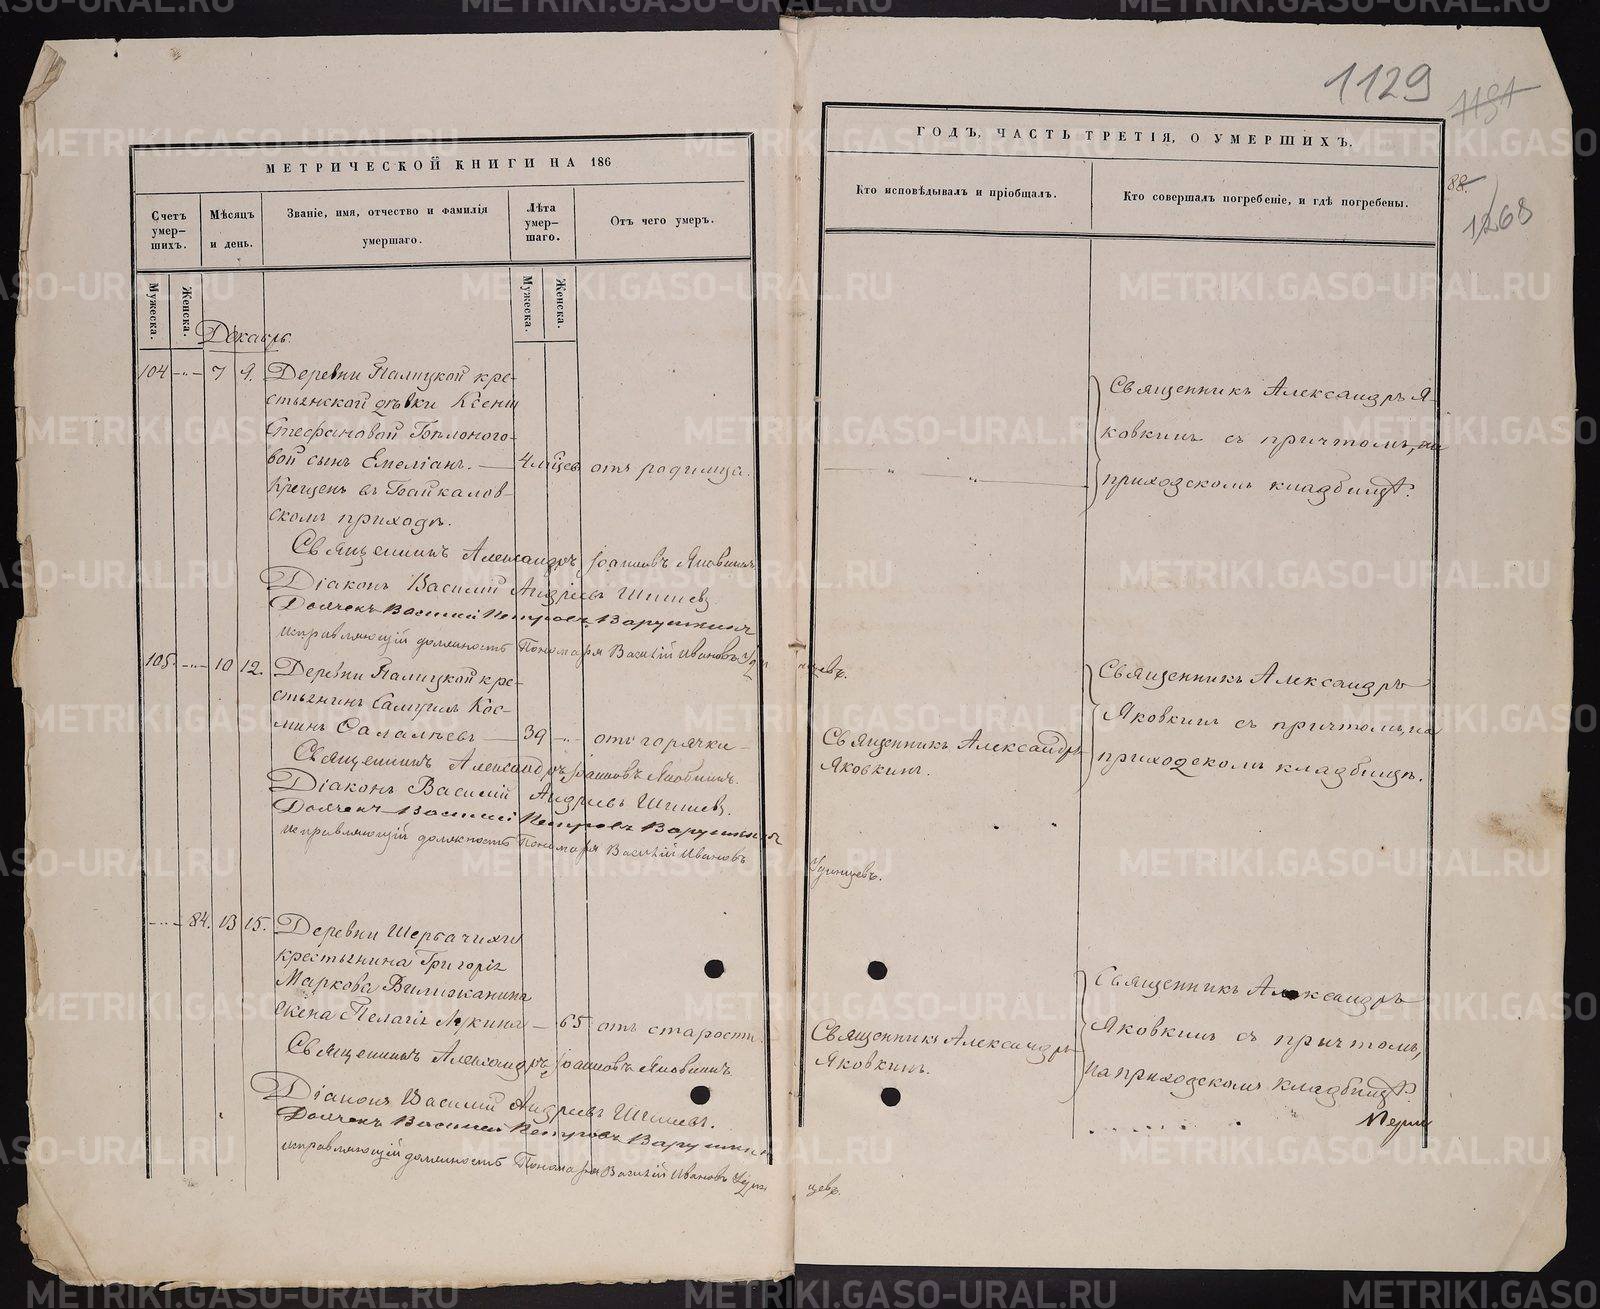 1129
1151
МЕТРИЧЕСКОЙ КНИГИ НА 186
ГОДЪ, ЧАСТЬ ТРЕТІЯ, О УМЕРШИХЪ.
88.
1268
Счетъ умер-шихъ.
Мѣсяцъ и день.
Званіе, имя, отчество и фамилія умершаго.
Лѣта умер-шаго.
Отъ чего умеръ.
Кто исповѣдывалъ и пріобщалъ.
Кто совершалъ погребеніе, и гдѣ погребены.
Мужеска.
Женска.
Мужеска.
Женска.
Декабрь.
104 7 9. Деревни Палицкой кре-
стьянской дѣвки Ксеніи
Стефановой
вой сынъ Емеліанъ. — 4 мѣсяцев отъ родимца.
Крещенъ въ Байкалов-
скомъ приходѣ.
Священникъ Александръ Яковкинъ съ причтомъ, на
приходскомъ кладбищѣ.
Священникъ Александръ Іоанновъ Яковкинъ
Діаконъ Василий Андреевъ Шишевъ
Дьячекъ Василий Петровъ Варушкинъ
исправляющій должность Пономаря Василій Ивановъ Удинцевъ.
105 10 12. Деревни Палицкой кре-
стьянинъ Самуилъ Кос-
минъ Саламѣевъ — 39 отъ горячки
Священникъ Александръ
Яковкинъ.
Священникъ Александръ
Яковкинъ съ причтомъ, на
приходскомъ кладбищѣ.
Священникъ Александръ Іоанновъ Яковкинъ.
Діаконъ Василий Андреевъ Шишевъ
Дьячекъ Василий Петровъ Варушкинъ
исправляющій должность Пономаря Василій Ивановъ
Удинцевъ.
84. 13 15. Деревни Щербачихи
крестьянина Григорія
Маркова Вилижанина
жена Пелагія Лукина — 65 отъ старости
Священникъ Александръ
Яковкинъ.
Священникъ Александръ
Яковкинъ съ причтомъ,
на приходскомъ кладбищѣ.
Священникъ Александръ Іоанновъ Яковкинъ.
Діаконъ Василий Андреевъ Шишевъ.
Дьячекъ Василий Петровъ Варушкинъ
исправляющій должность Пономаря Василій Ивановъ Удинцевъ.
METRIKI.GASO-URAL.RU